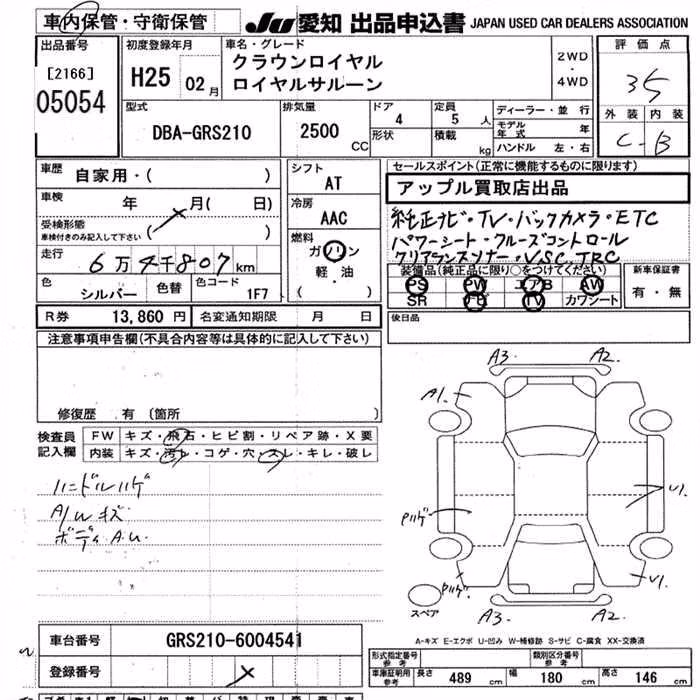 車内保管・守衛保管
JU 愛知 出品申込書 JAPAN USED CAR DEALERS ASSOCIATION
出品番号
[2166]
05054
初度登録年月
H25 02月
車名・グレード
クラウンロイヤル
ロイヤルサルーン
2WD
・
4WD
評価点
3.5
外装 内装
C - B
型式
DBA-GRS210
排気量
2500 CC
ドア 4
形状
定員 5 人
積載 kg
ディーラー・並行
モデル年式 年
ハンドル 左・右
車歴 自家用・( )
車検 年 月( 日)
受検形態
車検付きのみ記入して下さい ( )
走行 6万4千807km
色 シルバー 色替 色コード 1F7
シフト AT
冷房 AAC
燃料 ガソリン
軽・油
( )
セールスポイント(正常に機能するものに限ります)
アップル買取店出品
純正ナビ・TV・バックカメラ・ETC
パワーシート・クルーズコントロール
クリアランスソナー・VSC.TRC
装備品(純正品に限り○をつけてください)
PS PW エアB AW
SR ナビ TV カワシート
新車保証書
有・無
R券 13,860円 名変通知期限 月 日
後日品
注意事項申告欄(不具合内容等は具体的に記入して下さい)
修復歴 有 〔箇所 〕
検査員記入欄
FW キズ・飛石・ヒビ割・リペア跡・X要
内装 キズ・汚レ・コゲ・穴・スレ・キレ・破レ
ハンドルハゲ
A/Wキズ
ボディA.U.
A3. A2.
A1.
U1.
Pハゲ
Pハゲ
U1
A3. A2.
スペア
A-キズ E-エクボ U-凹み W-補修跡 S-サビ C-腐食 XX-交換済
車台番号 GRS210-6004541
登録番号
形式指定番号 参考
類別区分番号 参考
車庫証明用 参考 長さ 489 cm 幅 180 cm 高さ 146 cm